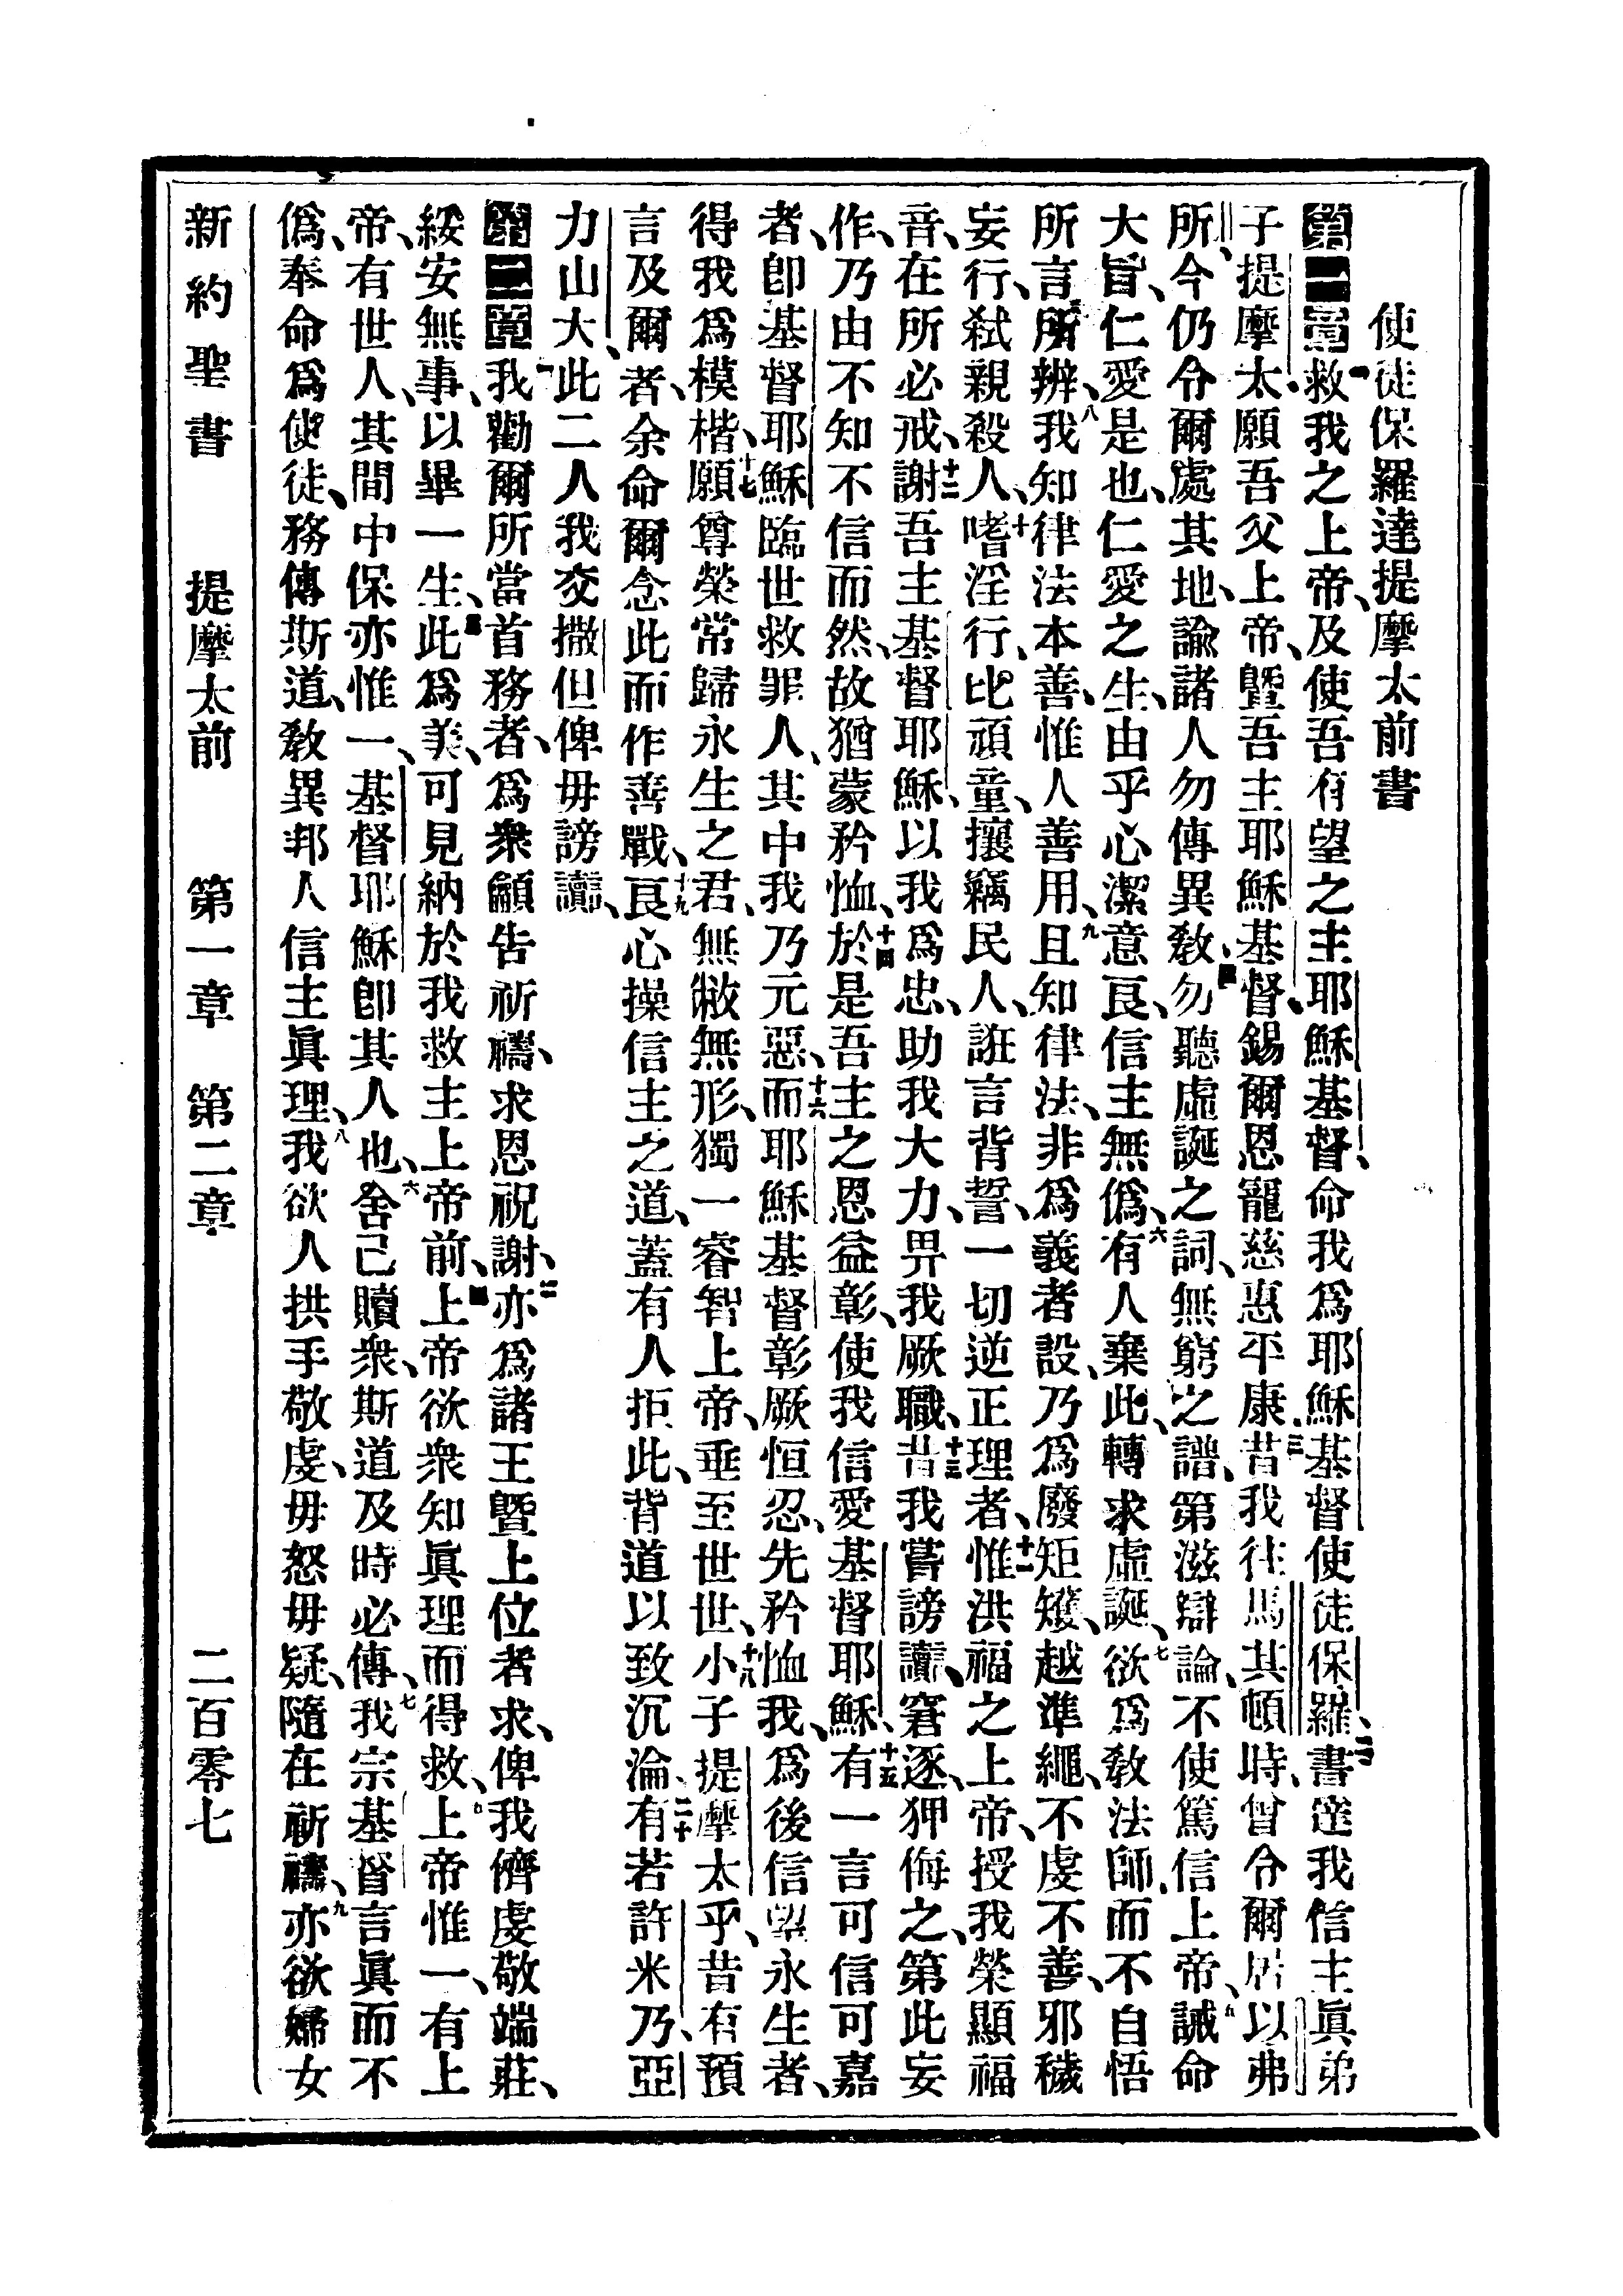 使徒保羅達提摩太前書
第一章一救我之上帝、及使吾有望之主耶穌基督、命我爲耶穌基督使徒保羅、二書達我信主眞弟
子提摩太、願吾父上帝、曁吾主耶穌基督、錫爾恩寵慈惠平康、三昔我往馬其頓時、曾令爾居以弗
所、今仍令爾處其地、諭諸人勿傳異敎、四勿聽虛誕之詞、無窮之譜、第滋辯論、不使篤信上帝、五誡命
大旨、仁愛是也、仁愛之生、由乎心潔意良、信主無僞、六有人棄此、轉求虛誕、七欲爲敎法師、而不自悟
所言所辨、八我知律法本善、惟人善用、九且知律法、非爲義者設、乃爲廢矩矱、越準繩、不虔不善、邪穢
妄行、弒親殺人、十嗜淫行、比頑童、攘竊民人、誑言背誓、一切逆正理者、十一惟洪福之上帝、授我榮顯福
音、在所必戒、十二謝吾主基督耶穌、以我爲忠、助我大力、畀我厥職、十三昔我嘗謗讟、窘逐、狎侮之、第此妄
作、乃由不知不信而然、故猶蒙矜恤、十四於是吾主之恩益彰、使我信愛基督耶穌、十五有一言可信可嘉
者、卽基督耶穌臨世救罪人、其中我乃元惡、十六而耶穌基督彰厥恒忍、先矜恤我、爲後信望永生者、
得我爲模楷、十七願尊榮常歸永生之君、無敝無形、獨一睿智上帝、垂至世世、十八小子提摩太乎、昔有預
言及爾者、余命爾念此而作善戰、十九良心操信主之道、蓋有人拒此、背道以致沉淪、二十有若許米乃、亞
力山大、此二人我交撒但、俾毋謗讟、
第二章一我勸爾所當首務者、爲衆籲告祈禱、求恩祝謝、二亦爲諸王曁上位者求、俾我儕虔敬端莊、
綏安無事、以畢一生、三此爲美、可見納於我救主上帝前、四上帝欲衆知眞理而得救、五上帝惟一、有上
帝、有世人、其間中保亦惟一、基督耶穌卽其人也、六舍己贖衆、斯道及時必傳、七我宗基督言眞而不
僞、奉命爲使徒、務傳斯道、敎異邦人信主眞理、八我欲人拱手敬虔、毋怒毋疑、隨在祈禱、九亦欲婦女
新約聖書　提摩太前　第一章　第二章　二百零七